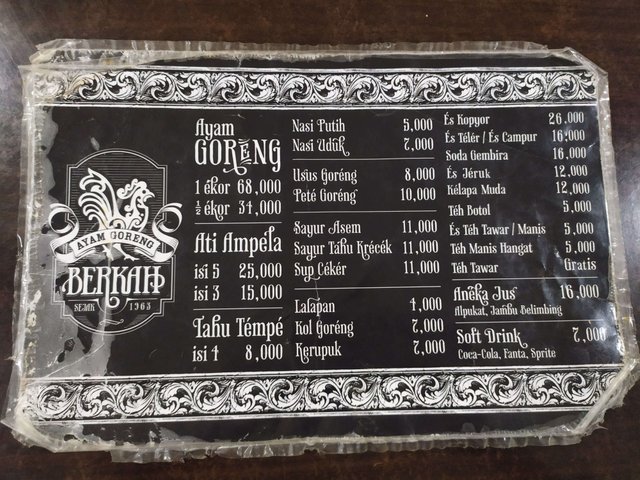 AYAM GORENG
BERKAH
SEJAK 1963
Ayam
GORENG
1 ékor 68,000
½ ékor 34,000
Ati Ampéla
isi 5 25,000
isi 3 15,000
Tahu Témpé
isi 4 8,000
Nasi Putih 5,000
Nasi Udük 7,000
Usus Goréng 8,000
Peté Goréng 10,000
Sayur Asem 11,000
Sayur Tahu Krécék 11,000
Sup Cékér 11,000
Lalapan 4,000
Kol Goréng 7,000
Kerupuk 7,000
És Kopyor 26,000
És Télér / És Campur 16,000
Soda Gembira 16,000
És Jéruk 12,000
Kélapa Muda 12,000
Téh Botol 5,000
És Téh Tawar / Manis 5,000
Téh Manis Hangat 5,000
Téh Tawar Gratis
Anéka Jus 16,000
Alpukat, Jambu Belimbing
Soft Drink 7,000
Coca-Cola, Fanta, Sprite